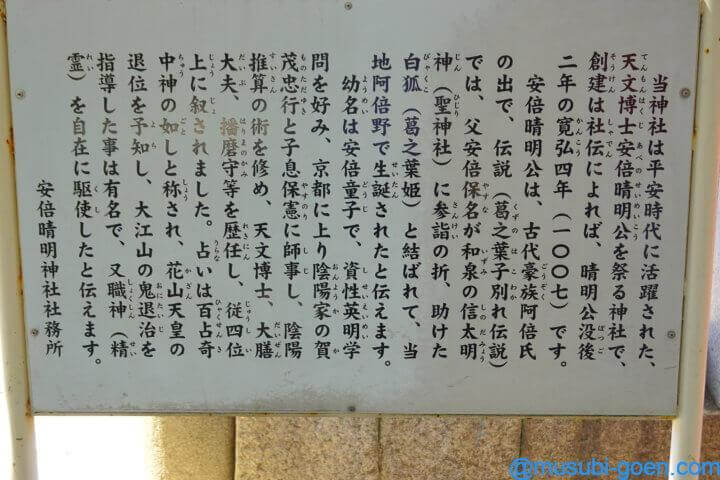 当神社は平安時代に活躍された、
天文博士安倍晴明公を祭る神社で、
創建は社伝によれば、晴明公没後
二年の寛弘四年(一〇〇七)です。
安倍晴明公は、古代豪族阿倍氏
の出で、伝説(葛之葉子別れ伝説)
では、父安倍保名が和泉の信太明
神(聖神社)に参詣の折、助けた
白狐(葛之葉姫)と結ばれて、当
地阿倍野で生誕されたと伝えます。
幼名は安倍童子で、資性英明学
問を好み、京都に上り陰陽家の賀
茂忠行と子息保憲に師事し、陰陽
推算の術を修め、天文博士、大膳
大夫、播磨守等を歴任し、従四位
上に叙されました。占いは百占奇
中神の如しと称され、花山天皇の
退位を予知し、大江山の鬼退治を
指導した事は有名で、又職神(精
霊)を自在に駆使したと伝えます。
安倍晴明神社社務所
@musubi-goen.com